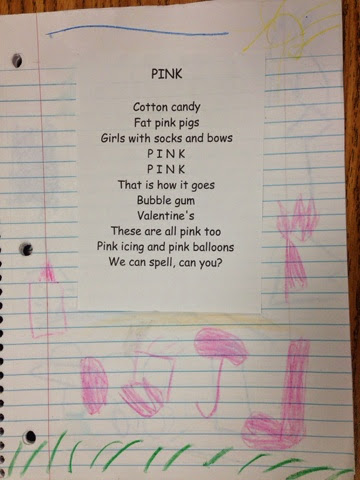 PINK
Cotton candy
Fat pink pigs
Girls with socks and bows
P I N K
P I N K
That is how it goes
Bubble gum
Valentine's
These are all pink too
Pink icing and pink balloons
We can spell, can you?